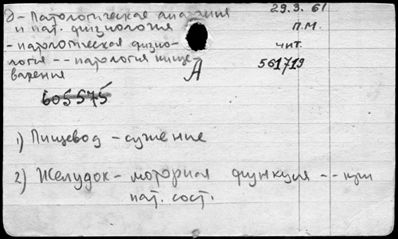 д - Патологическая анатомия 29.3.61
и пат. физиология П.М.
- патологическая физио- чит.
логия -- патология пище- 561719
варения А
605575
1) Пищевод - сужение
2) Желудок - моторная функция -- при
пат. сост.